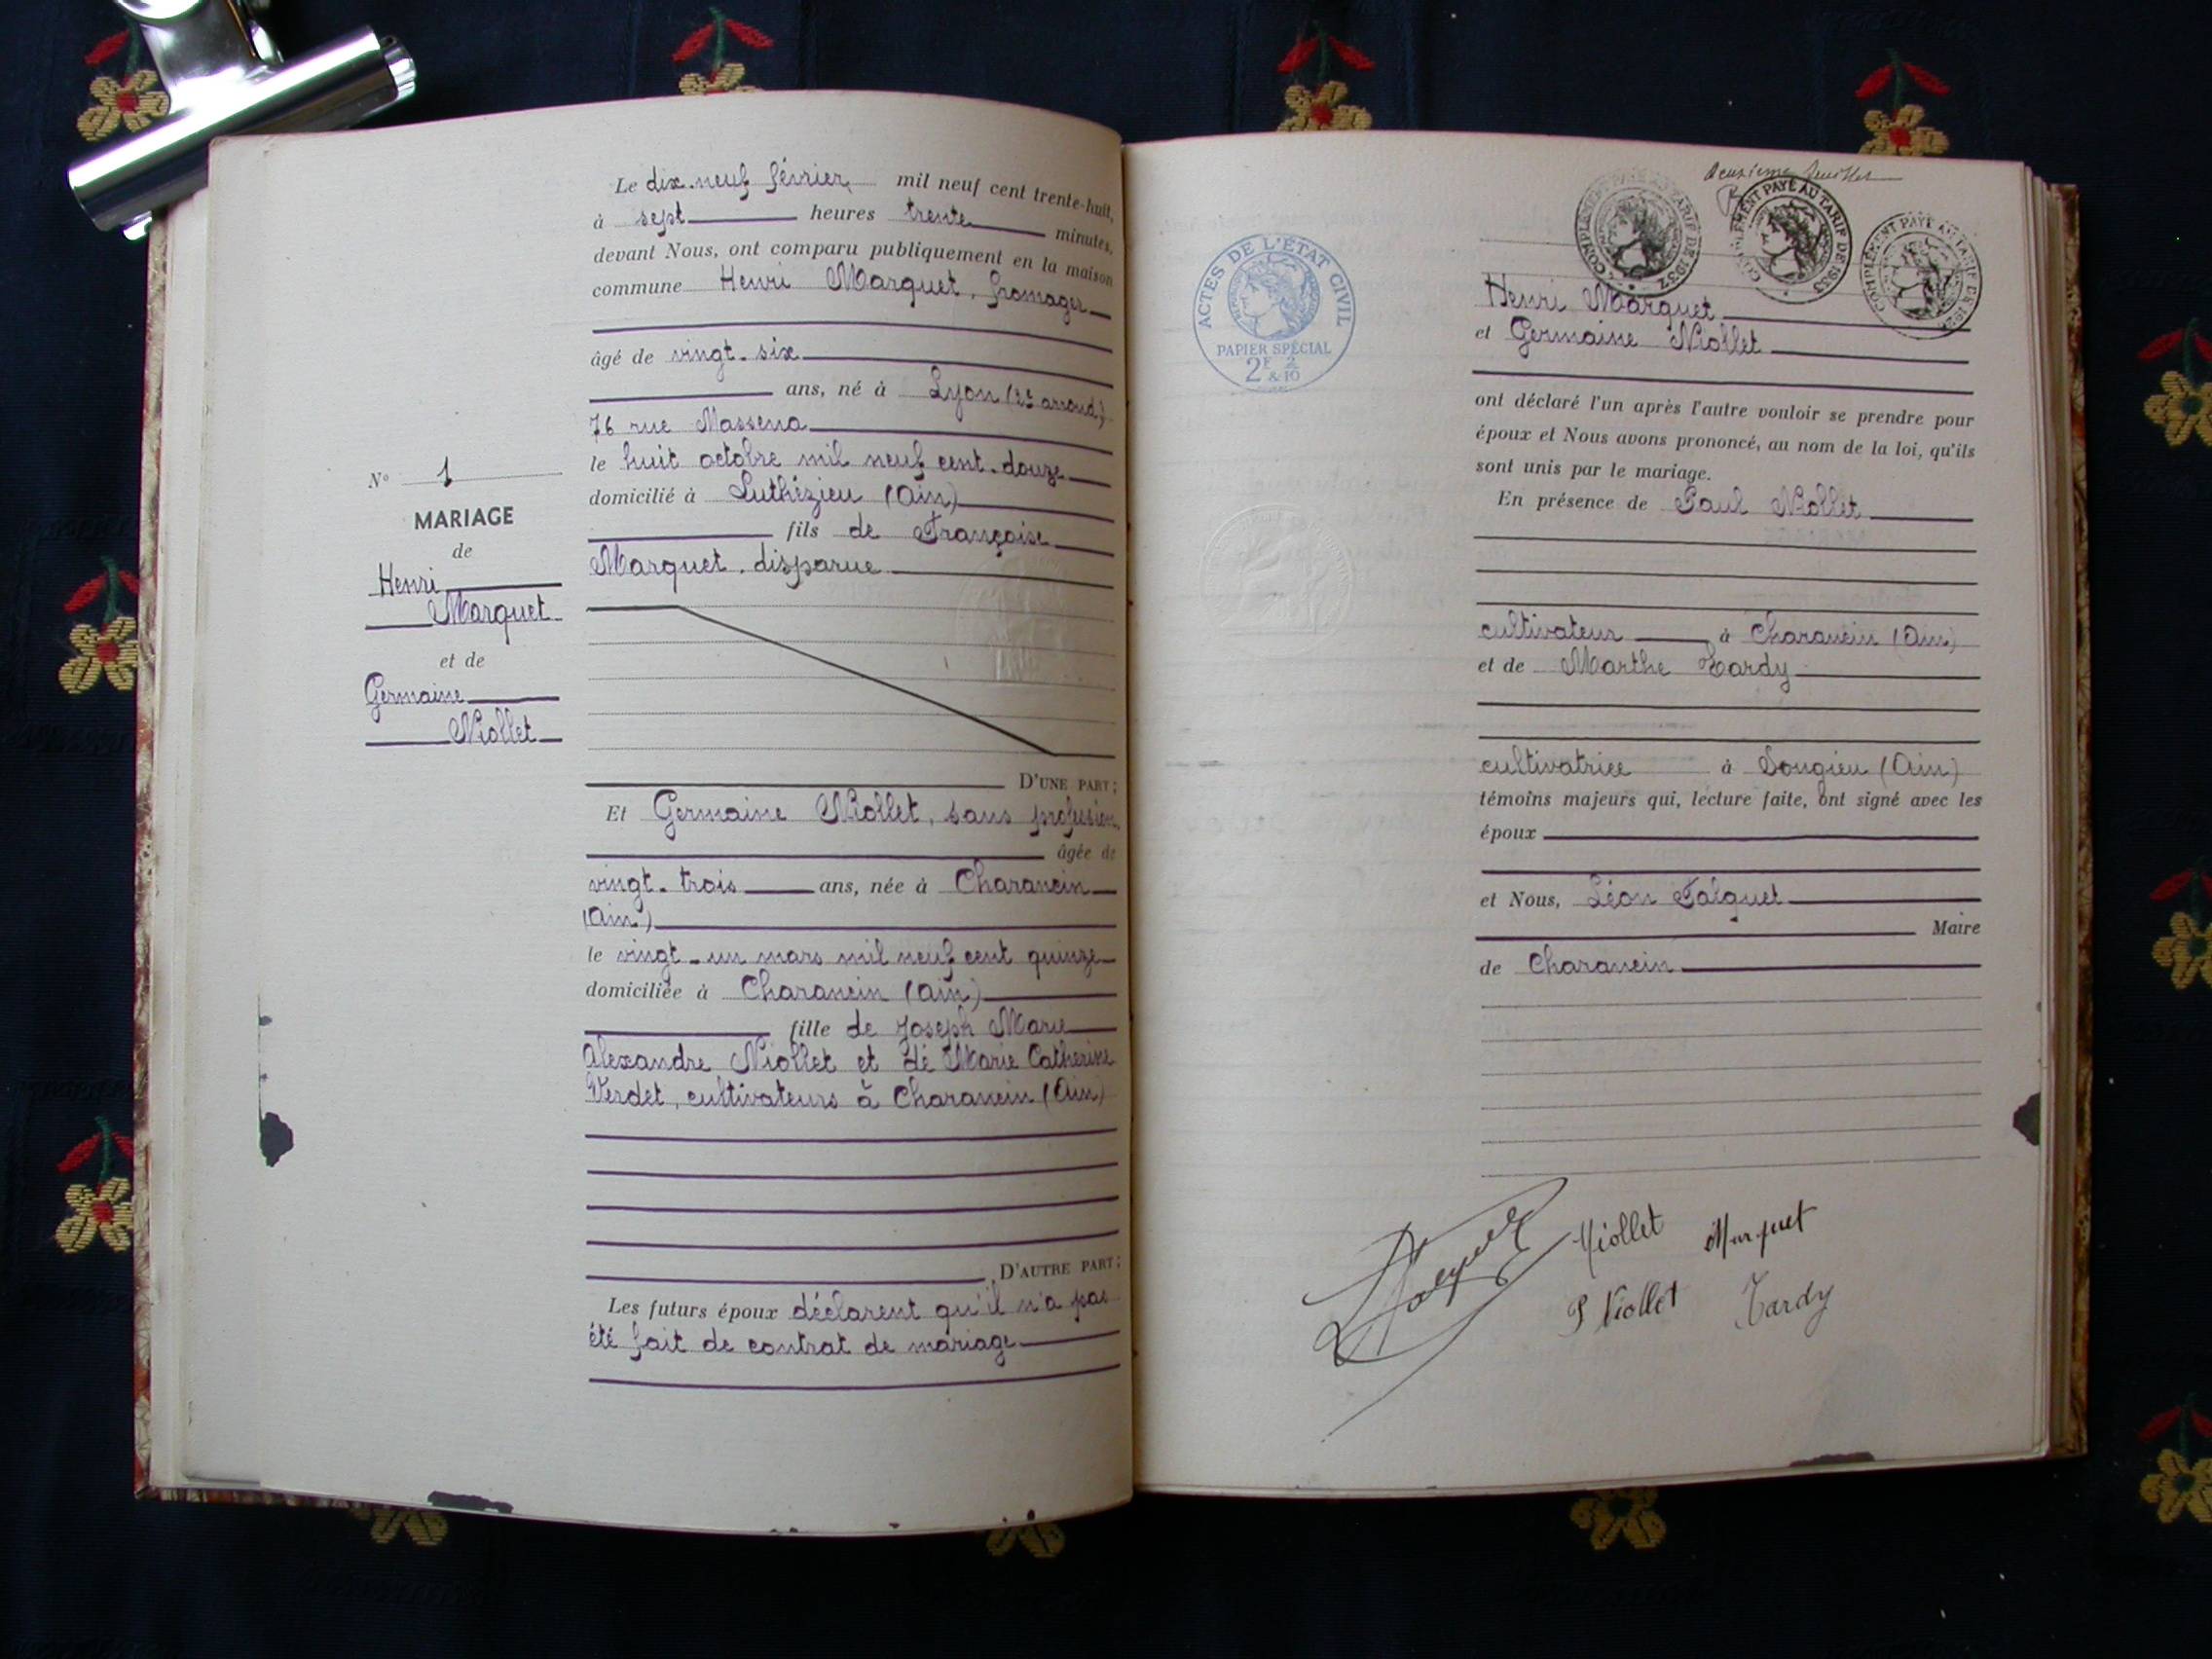 Le dix-neuf février mil neuf cent trente-huit,
à sept heures trente minutes,
devant Nous, ont comparu publiquement en la maison
commune Henri Marquet, fromager
âgé de vingt-six
ans, né à Lyon (2e arrond.)
76 rue Massena
le huit octobre mil neuf cent douze
domicilié à Luthézieu (Ain)
fils de Françoise
Marquet, disparue
D'UNE PART;
Et Germaine Niollet, sans profession,
âgée de
vingt-trois ans, née à Charancin
(Ain)
le vingt-un mars mil neuf cent quinze
domiciliée à Charancin (Ain)
fille de Joseph Marie
Alexandre Niollet et de Marie Catherine
Verdet, cultivateurs à Charancin (Ain)
D'AUTRE PART;
Les futurs époux déclarent qu'il n'a pas
été fait de contrat de mariage
N° 1
MARIAGE
de
Henri
Marquet
et de
Germaine
Niollet
deuxième feuillet
COMPLÉMENT PAYÉ AU TARIF DE 1937
COMPLÉMENT PAYÉ AU TARIF DE 1933
COMPLÉMENT PAYÉ AU TARIF DE
ACTES DE L'ÉTAT CIVIL
PAPIER SPÉCIAL
2F & 2/10
Henri Marquet
et Germaine Niollet
ont déclaré l'un après l'autre vouloir se prendre pour
époux et Nous avons prononcé, au nom de la loi, qu'ils
sont unis par le mariage.
En présence de Paul Niollet
cultivateur à Charancin (Ain)
et de Marthe Tardy
cultivatrice à Songieu (Ain)
témoins majeurs qui, lecture faite, ont signé avec les
époux
et Nous, Léon Falquet
Maire
de Charancin
Falquet Niollet Marquet
P Niollet Tardy